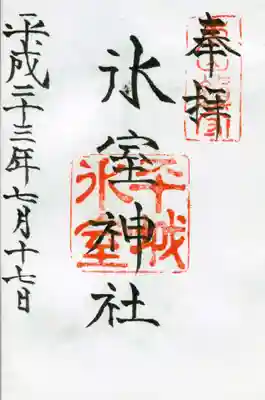 奉拝
氷室神社
平城
氷室
平成二十三年七月十七日